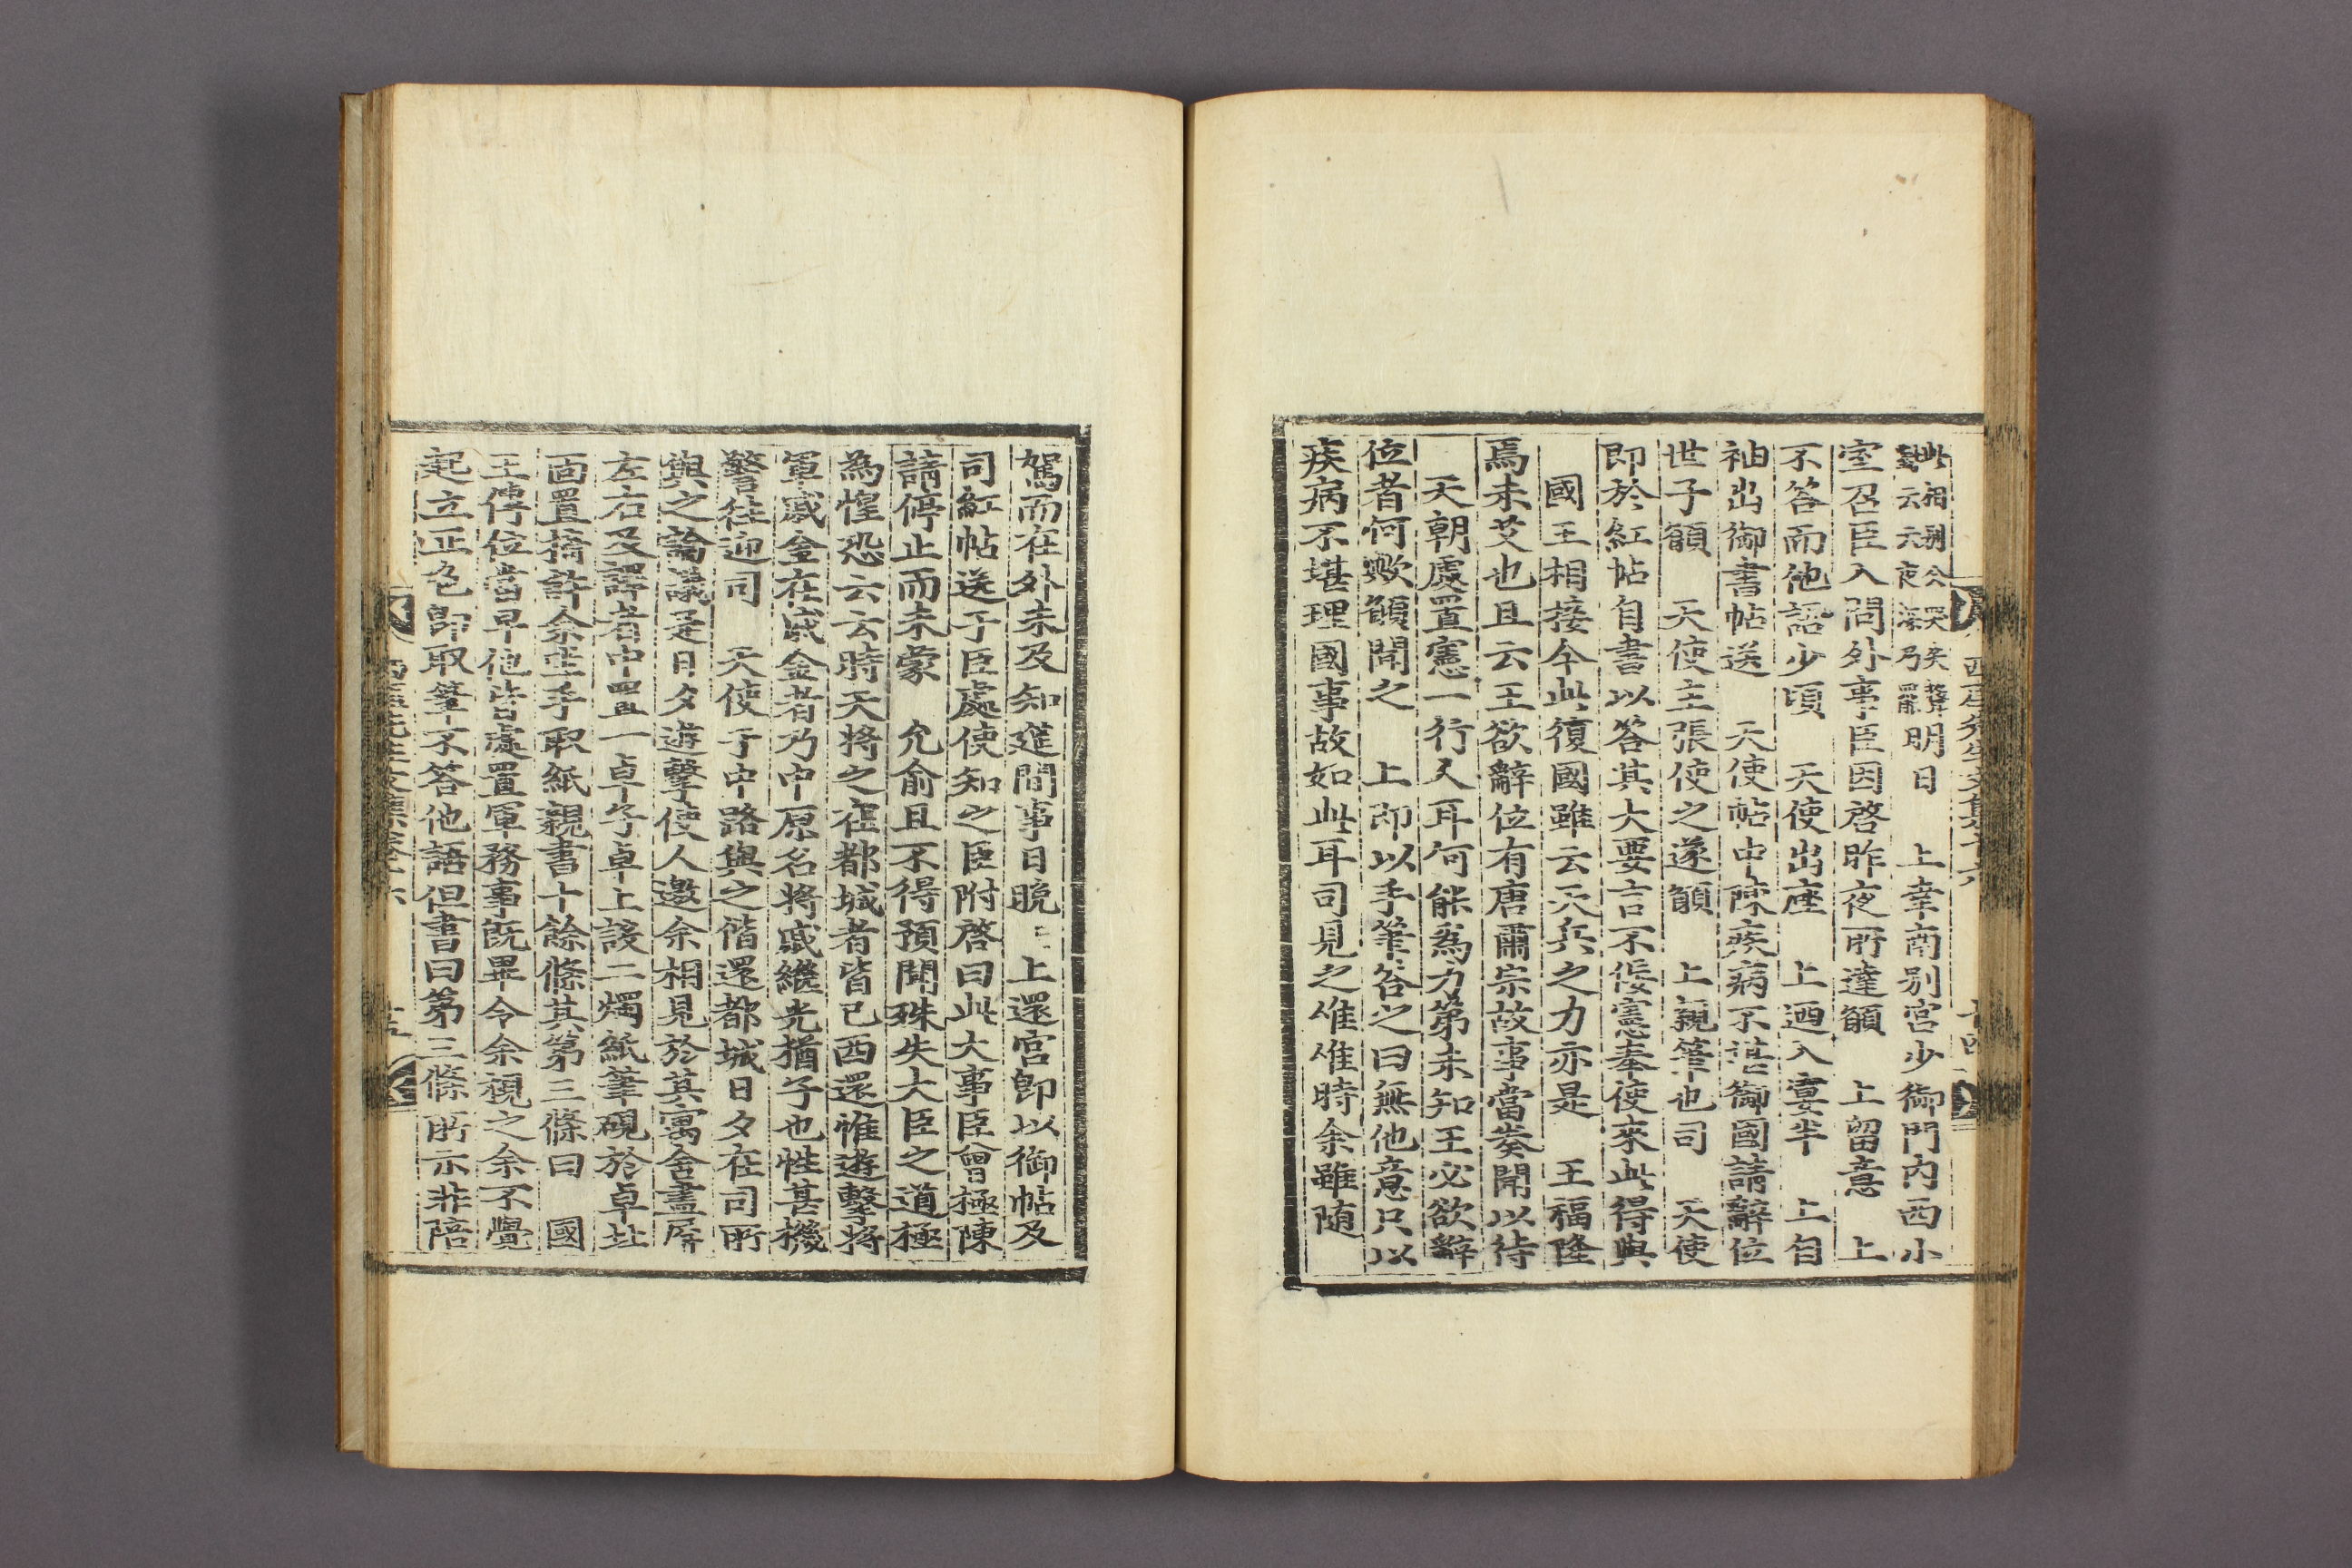 西厓先生文集卷十六 十四
此相朝公哭矣聲 歎云云夜深乃罷 明日 上幸南別宮少御門內西小
室召臣入問外事臣因啓昨夜所達願 上留意 上
不答而他語少頃 天使出座 上迺入宴半 上自
袖出御書帖送 天使帖中陳疾病不堪御國請辭位
世子願 天使主張使之遂願 上親筆也司 天使
即於紅帖自書以答其大要言不佞憲奉使來此得與
國王相接今此復國雖云天兵之力亦是 王福隆
焉未艾也且云王欲辭位有唐肅宗故事當奏聞以待
天朝處置憲一行人耳何能爲力第未知王必欲辭
位者何歟願聞之 上即以手筆答之曰無他意只以
疾病不堪理國事故如此耳司見之唯唯時余雖随
駕而在外未及知筵間事日晩 上還宮即以御帖及
司紅帖送于臣處使知之臣附啓曰此大事臣曾極陳
請停止而未蒙 允俞且不得預聞殊失大臣之道極
為惶恐云云時天將之在都城者皆已西還惟遊擊將
軍戚金在戚金者乃中原名將戚繼光猶子也性甚機
警往迎司 天使于中路與之偕還都城日夕在司所
與之論議是日夕遊擊使人邀余相見於其寓舍盡屛
左右及譯者中置一卓子卓上設二燭紙筆硯於卓北
面置椅許余坐手取紙親書十餘條其第三條曰 國
王傳位當早他皆處置軍務事既畢令余視之余不覺
起立正色即取筆不答他語但書曰第三條所示非陪
西厓先生文集卷十六 十五